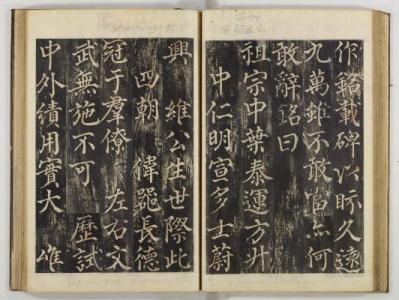 作銘載碑以眎久遠
九萬雖不敢追亦何
敢辭銘曰
祖宗中葉泰運方升
中仁明宣多士蔚
興維公生世際此
四朝偉器長德
冠于羣僚左右文
武無施不可歷試
中外績用實大雄